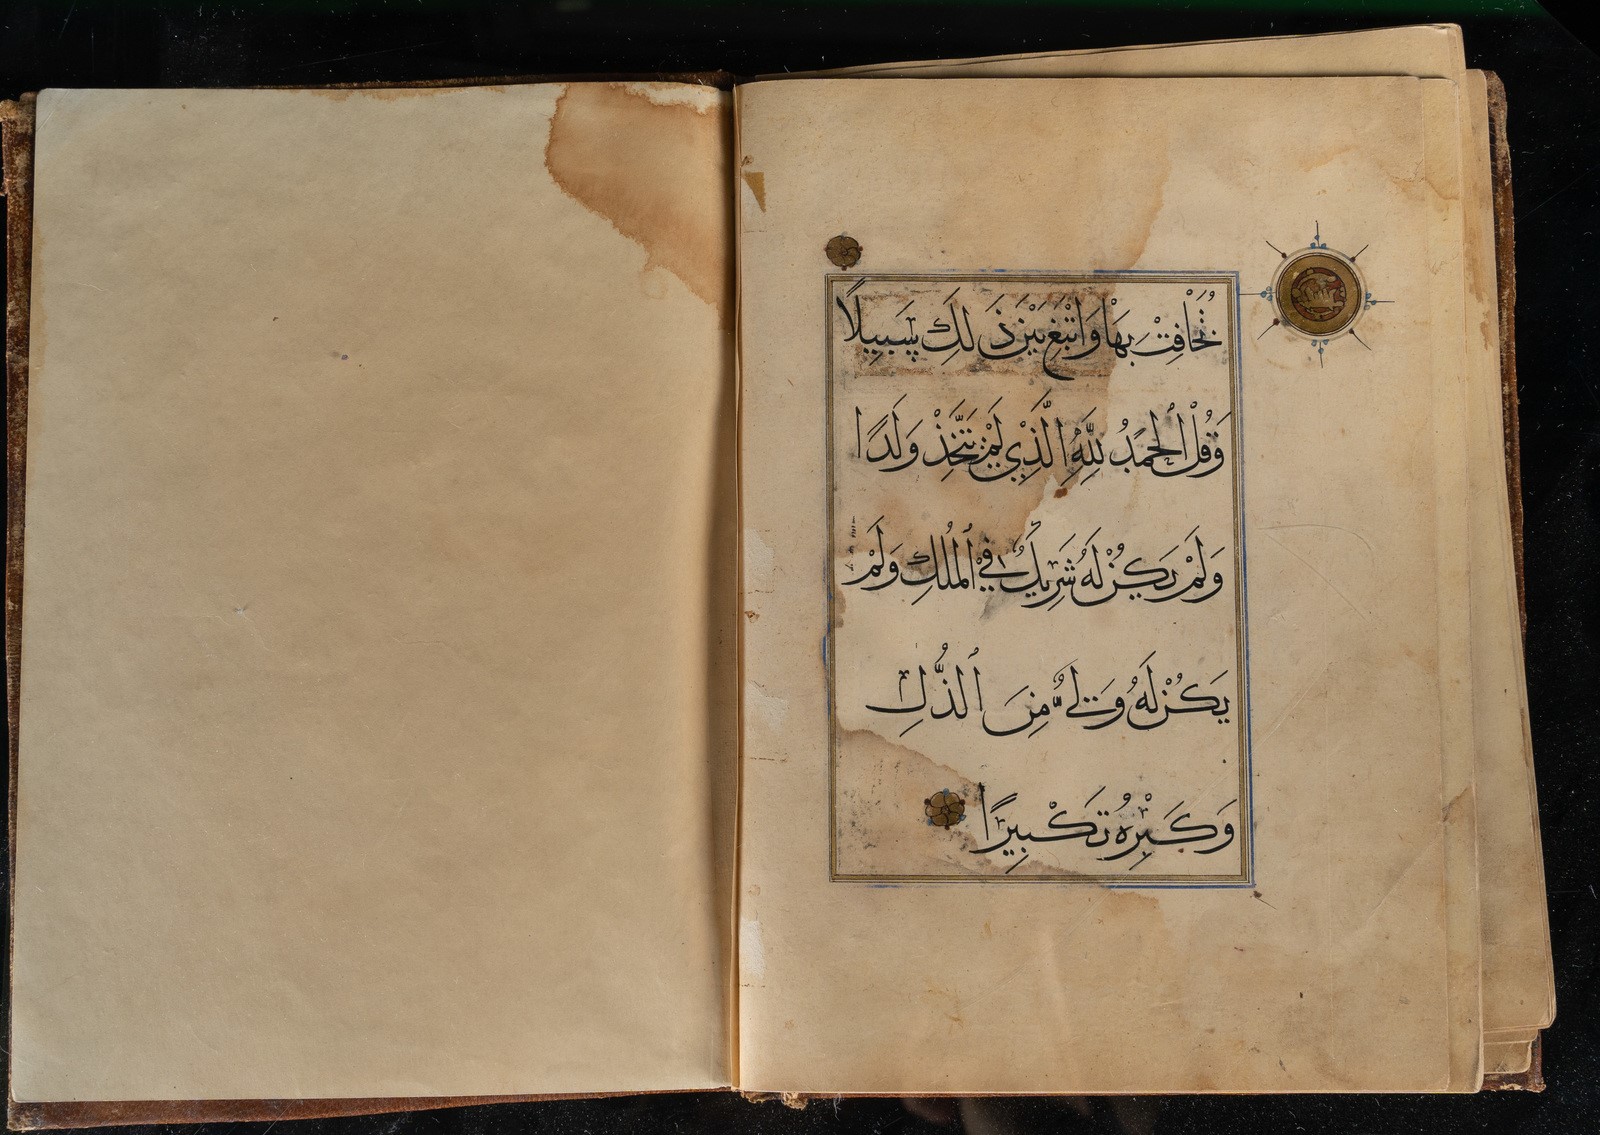 تُخَافِتْ بِهَا وَابْتَغِ بَيْنَ ذَلِكَ سَبِيلًا
وَقُلِ الْحَمْدُ لِلَّهِ الَّذِي لَمْ يَتَّخِذْ وَلَدًا
وَلَمْ يَكُنْ لَهُ شَرِيكٌ فِي الْمُلْكِ وَلَمْ
يَكُنْ لَهُ وَلِيٌّ مِنَ الذُّلِّ
وَكَبِّرْهُ تَكْبِيرًا